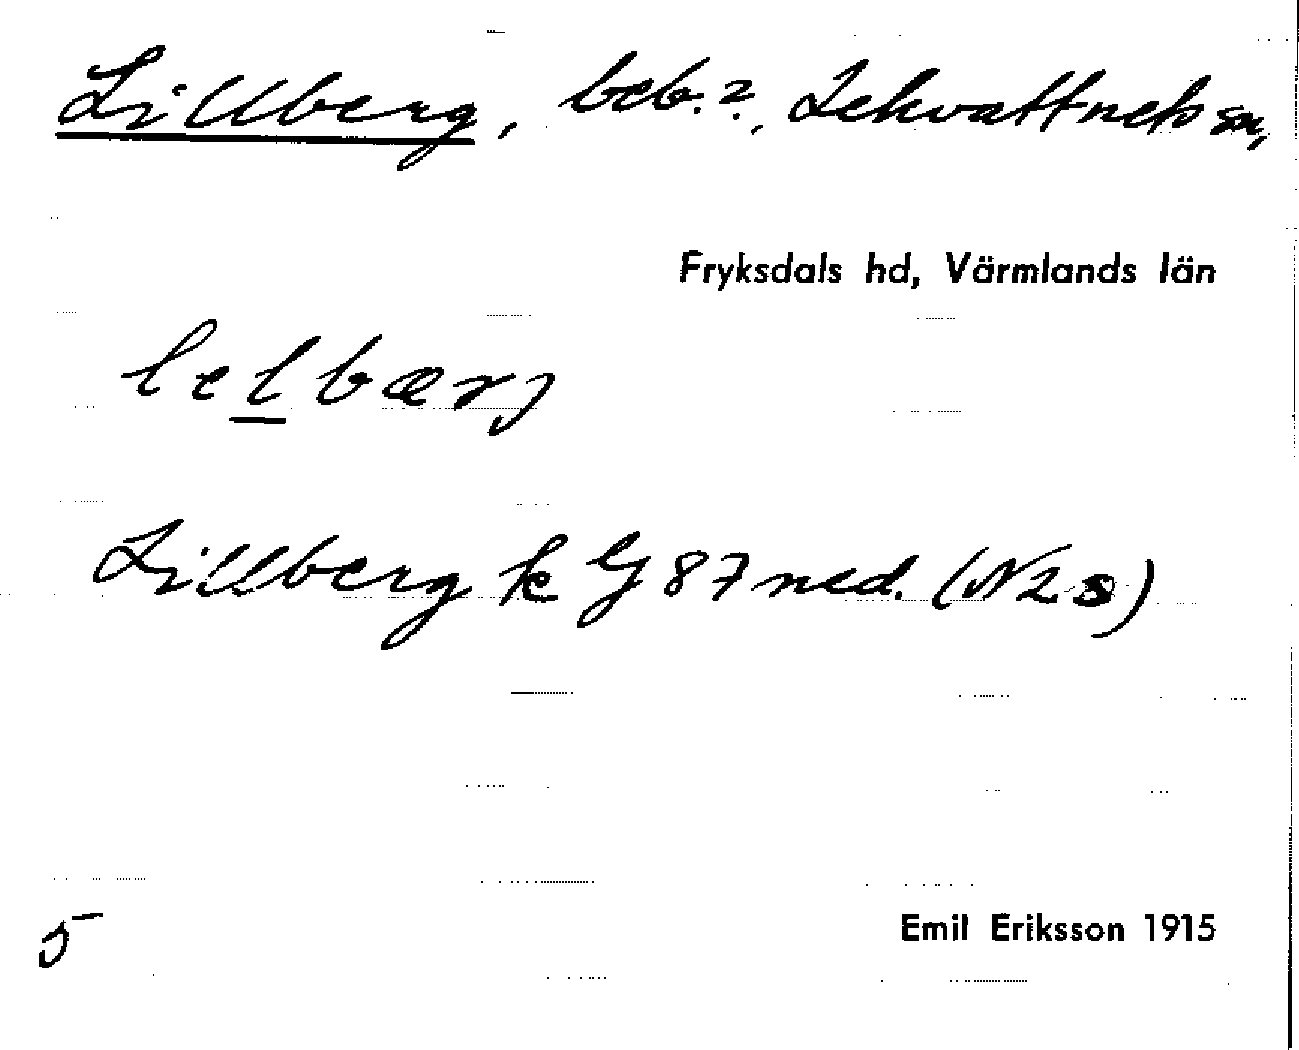 Lillberg, beb.?, Lekvattnets sn,
Fryksdals hd, Värmlands län
lelbærj
Lillberg k G 87 ned. (N2s)
5
Emil Eriksson 1915